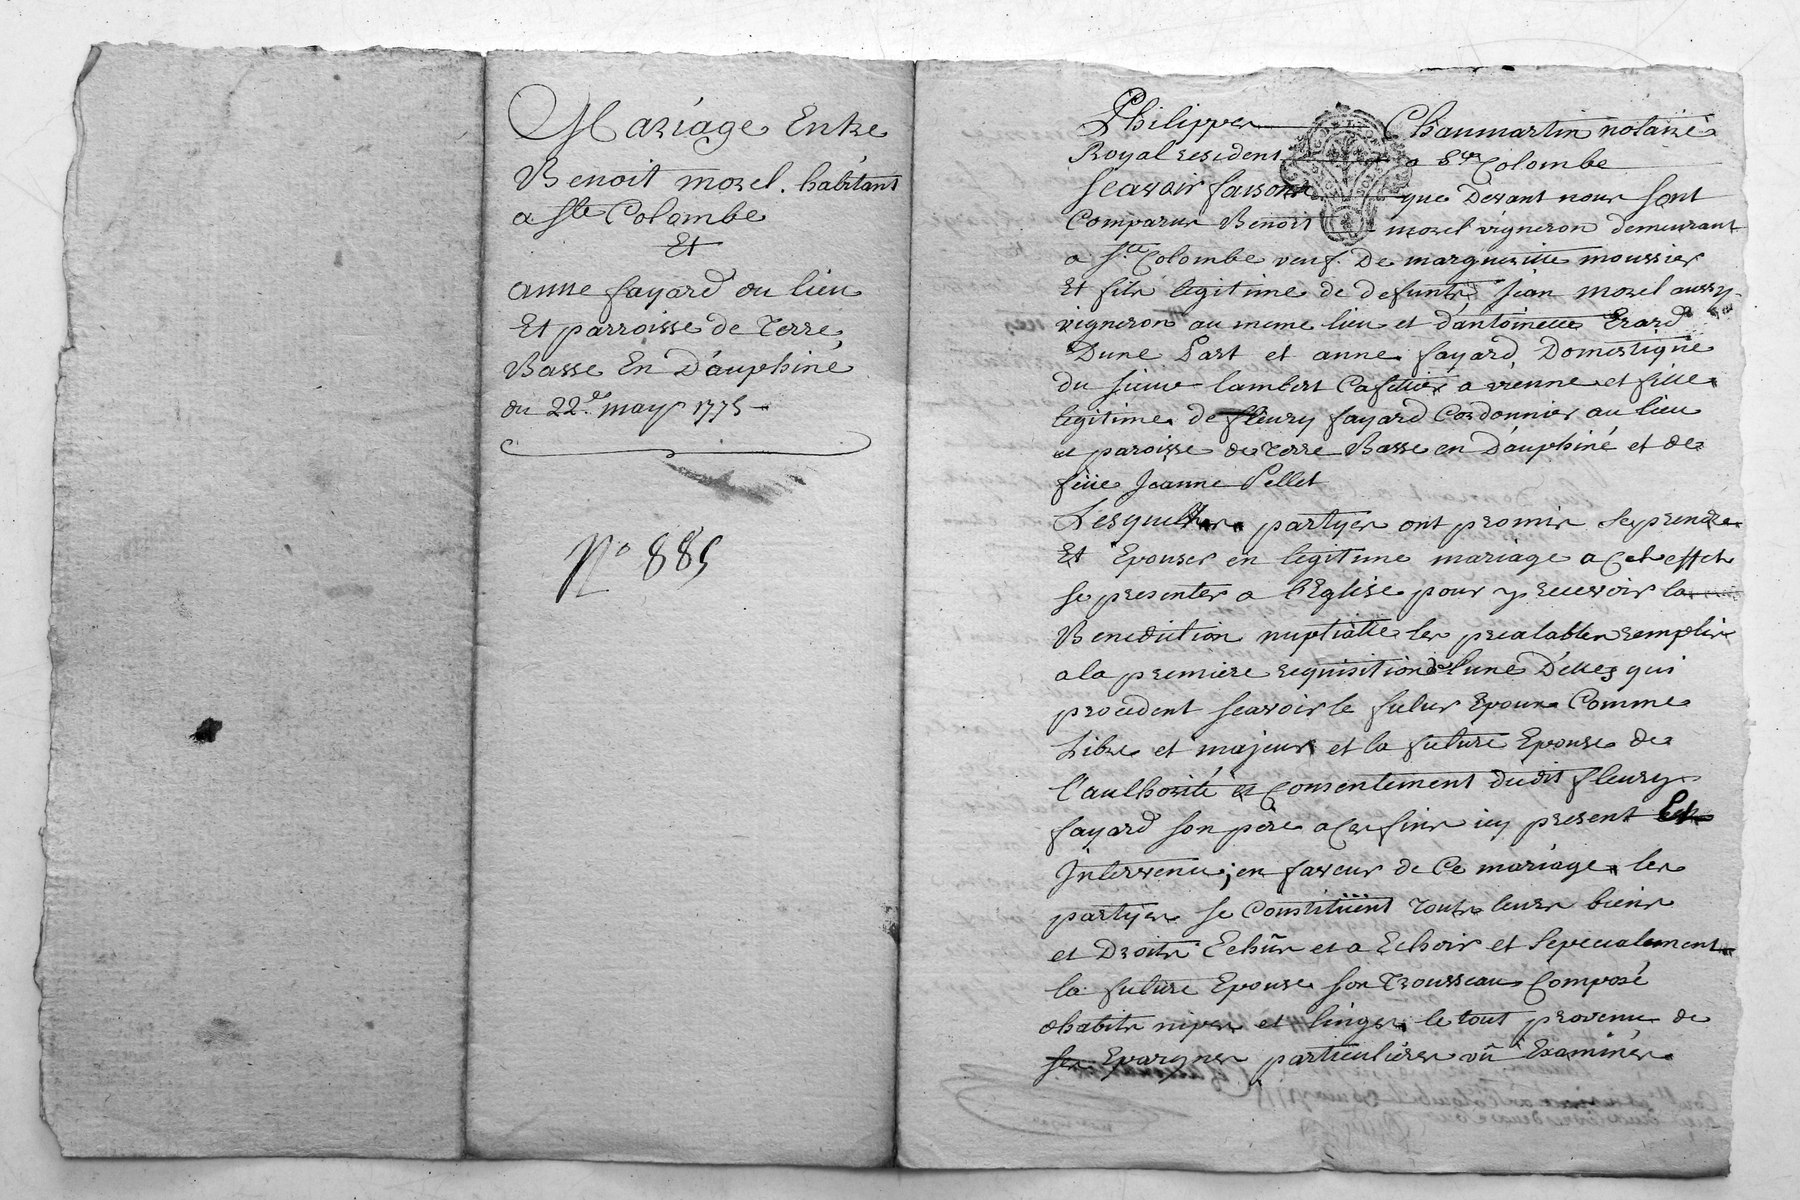 Mariage Entre
Benoit morel. habitant
a Ste Colombe
Et
anne fayard du lieu
Et parroisse de Terre
Basse En Dauphiné
du 22e may 1775
No 885
Philippes Chaumartin notaire
Royal resident a Ste Colombe
scavoir faisons que Devant nous sont
Comparus Benoit morel vigneron demeurant
a Ste Colombe veuf De margueritte moussier
Et fils legitime de defunts jean morel aussy
vigneron au meme lieu et d'antoinette Erard
Dune Part et anne fayard Domestique
du sieur lambert Cafettier a vienne et fille
legitime de fleury fayard Cordonnier au lieu
et paroisse de Terre Basse en Dauphiné et de
feüe Jeanne Pellet
Lesquelles partyes ont promis se prendre
Et Epouser en legitime mariage a Cet effet
se presenter a l'Eglise pour y recevoir la
Benediction nuptialle les prealables remplis
a la premiere requisition de lune D'elles qui
procedent scavoir le futur Epoux Comme
Libre et majeur et la future Epouse de
l'authorité et Consentement dudit fleury
fayard son pere a Ces fins icy present Et
Intervenu; en faveur de Ce mariage les
partyes se Constitüent touts leurs biens
et Droits Echûs et a Echoir et specialement
la future Epouse son Trousseau Composé
dhabits nipes et linges le tout provenu de
ses Epargnes particulieres vû Examinés